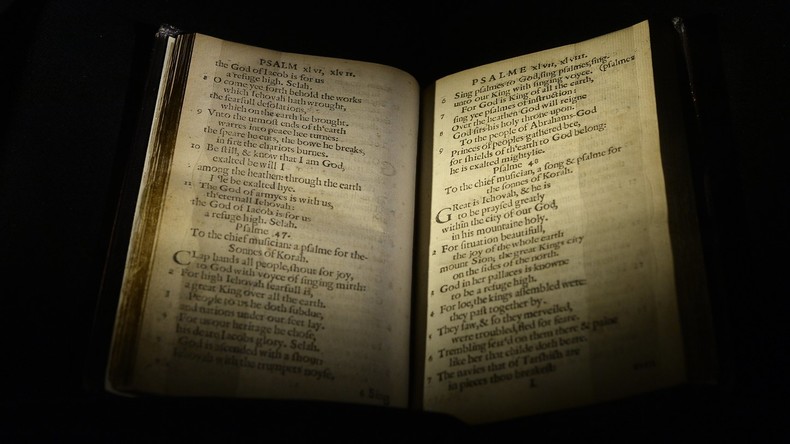 PSALM xlvi, xlvii.
the God of Iacob is for us
a refuge high. Selah.
8 O come yee forth behold the works
which Iehovah hath wrought,
the fearfull desolations,
which on the earth he brought.
9 Vnto the utmost ends of th'earth
warres into peace hee turnes:
the speare he cuts, the bowe he breaks,
in fire the chariots burnes.
10 Be still, & know that I am God,
exalted be will I
among the heathen: through the earth
I'le be exalted hye.
11 The God of armyes is with us,
th'eternall Iehovah:
the God of Iacob is for us
a refuge high. Selah.
Psalme 47.
To the chief musician: a psalme for the
Sonnes of Korah.
Clap hands all people, shout for joy,
to God with voyce of singing mirth:
2 For high Iehovah fearfull is,
a great King over all the earth.
3 People to us he doth subdue,
and nations under our feet lay.
4 For us our heritage he chose,
his deare Iacobs glory. Selah.
5 God is ascended with a shout
Iehovah with the trumpets noyse,
6 Sing
PSALME xlvii, xlviii.
6 Sing psalmes to God, sing psalmes, sing
(psalmes
unto our King with singing voyce.
7 For God is King of all the earth,
sing yee psalmes of instruction:
8 Over the heathen God will reigne
God sits his holy throne upon.
9 To the people of Abrahams God
Princes of peoples gathered bee,
for shields of th'earth to God belong:
he is exalted mightylie.
Psalme 40
To the chief musician, a song & psalme for
the sonnes of Korah.
Great is Iehovah, & he is
to be praysed greatly
within the city of our God,
in his mountaine holy.
2 For situation beautifull,
the joy of the whole earth
mount Sion; the great Kings city
on the sides of the north.
3 God in her pallaces is knowne
to be a refuge high.
4 For loe, the kings assembled were:
they past together by.
5 They saw, & so they merveiled,
were troubled, fled for feare.
6 Trembling seiz'd on them there & paine
like her that childe doth beare.
7 The navies that of Tarshish are
in pieces thou breakest: